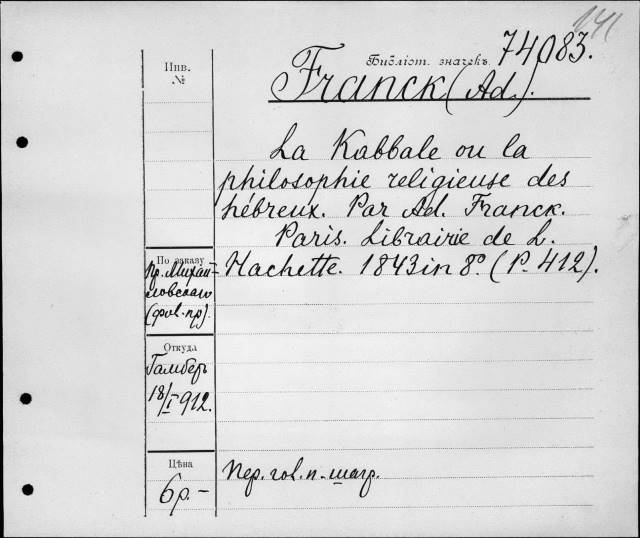 141
Инв.
№
Библіот. значекъ 74083.
Franck (Ad.).
La Kabbale ou la
philosophie religieuse des
hébreux. Par Ad. Franck.
Paris. Librairie de L.
Hachette. 1843 in 8º. (P. 412).
По заказу
пр. Михай-
ловскаго
Откуда
Гамберъ
18/I 912.
Цѣна
6 р. –
Пер. гол. п. шагр.